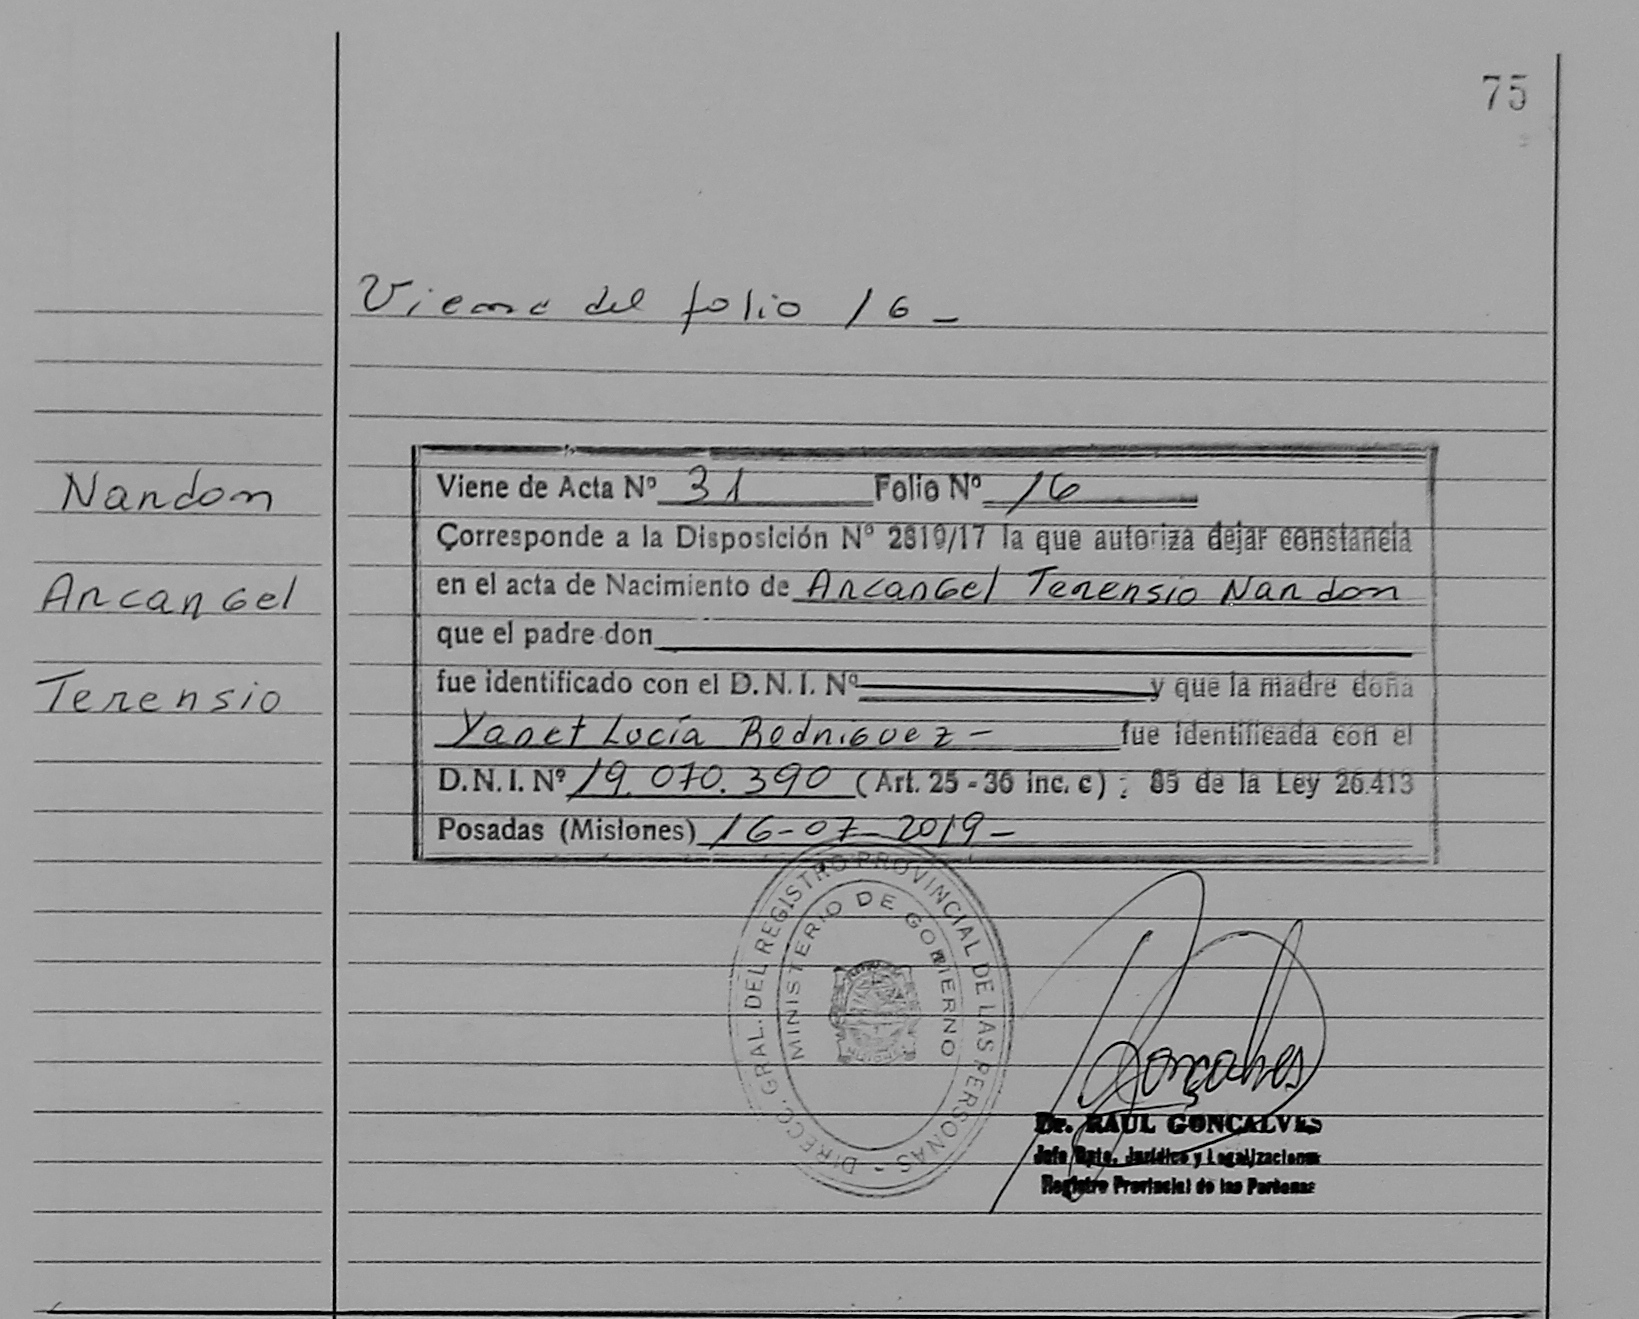 75
Viene del folio 16 -
Nardon
Arcangel
Terensio
Viene de Acta Nº 31 Folio Nº 16
Corresponde a la Disposición Nº 2819/17 la que autoriza dejar constancia
en el acta de Nacimiento de Arcangel Terensio Nardon
que el padre don
fue identificado con el D.N.I. Nº y que la madre doña
Yanet Lucía Rodriguez - fue identificada con el
D.N.I. Nº 19.070.390 (Art. 25 - 36 inc. c) ; 85 de la Ley 26.413
Posadas (Misiones) 16-07-2019-
DIRECC. GRAL. DEL REGISTRO PROVINCIAL DE LAS PERSONAS -
MINISTERIO DE GOBIERNO
Gonçalves
Dr. RAUL GONÇALVES
Jefe Dpto. Jurídico y Legalizaciones
Registro Provincial de las Personas